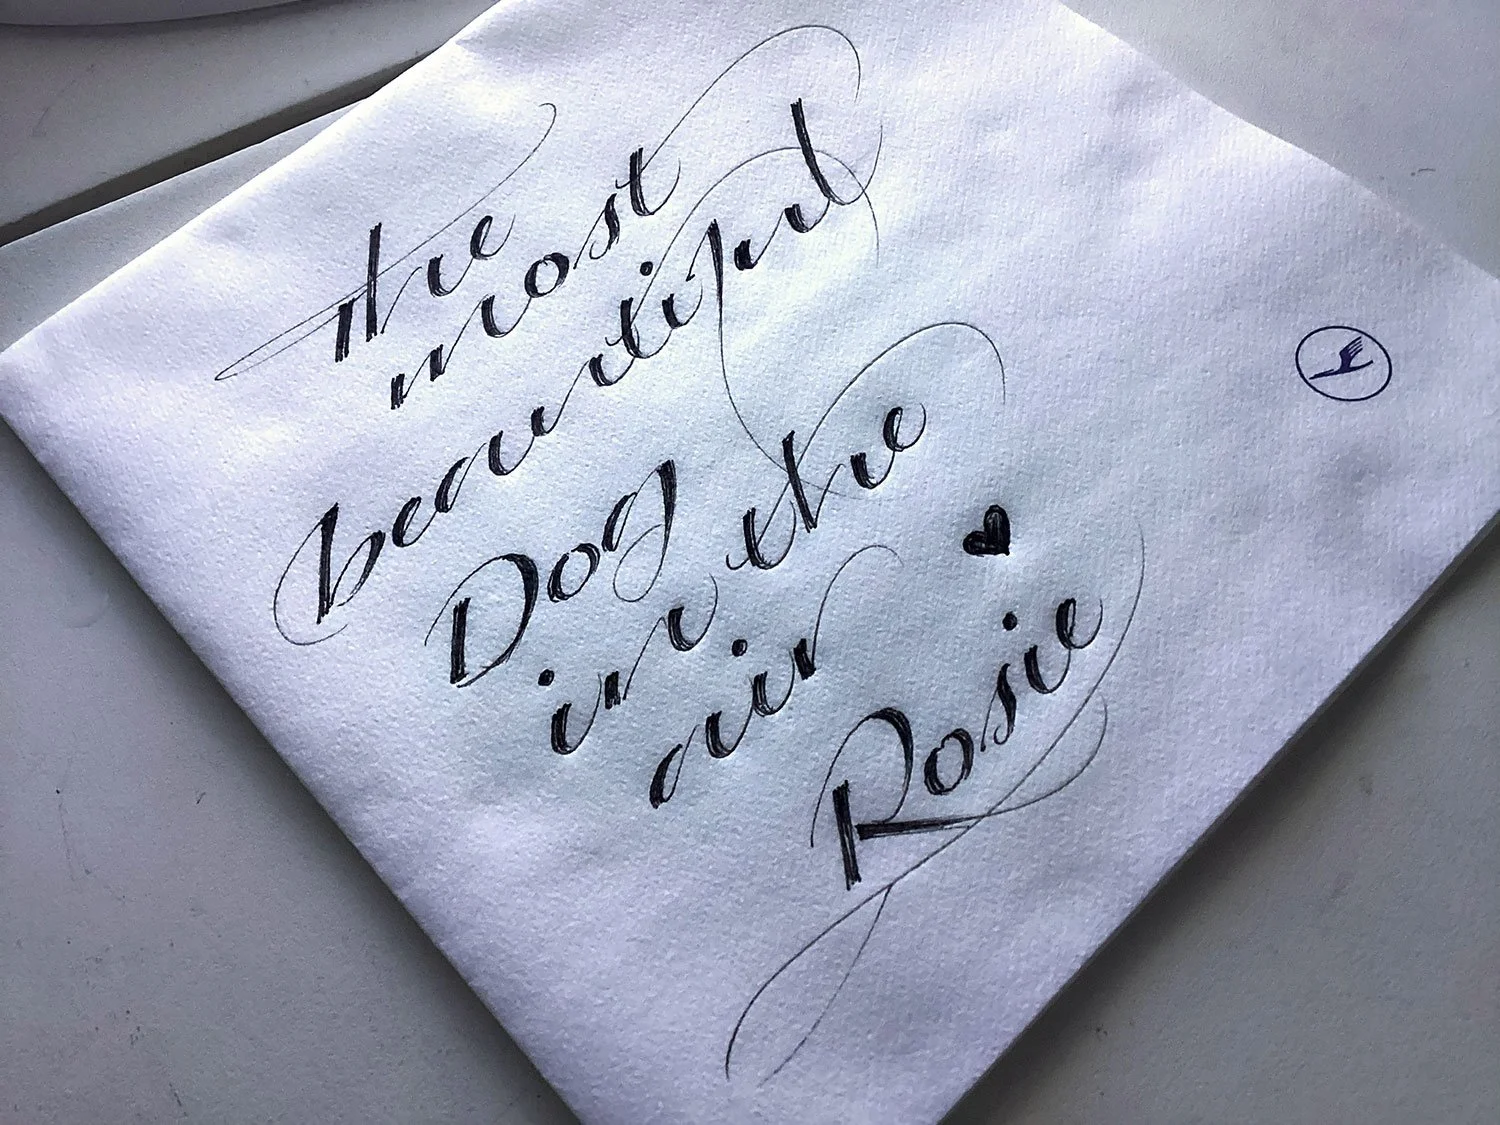 the
most
beautiful
Dog
in the
air
Rosie